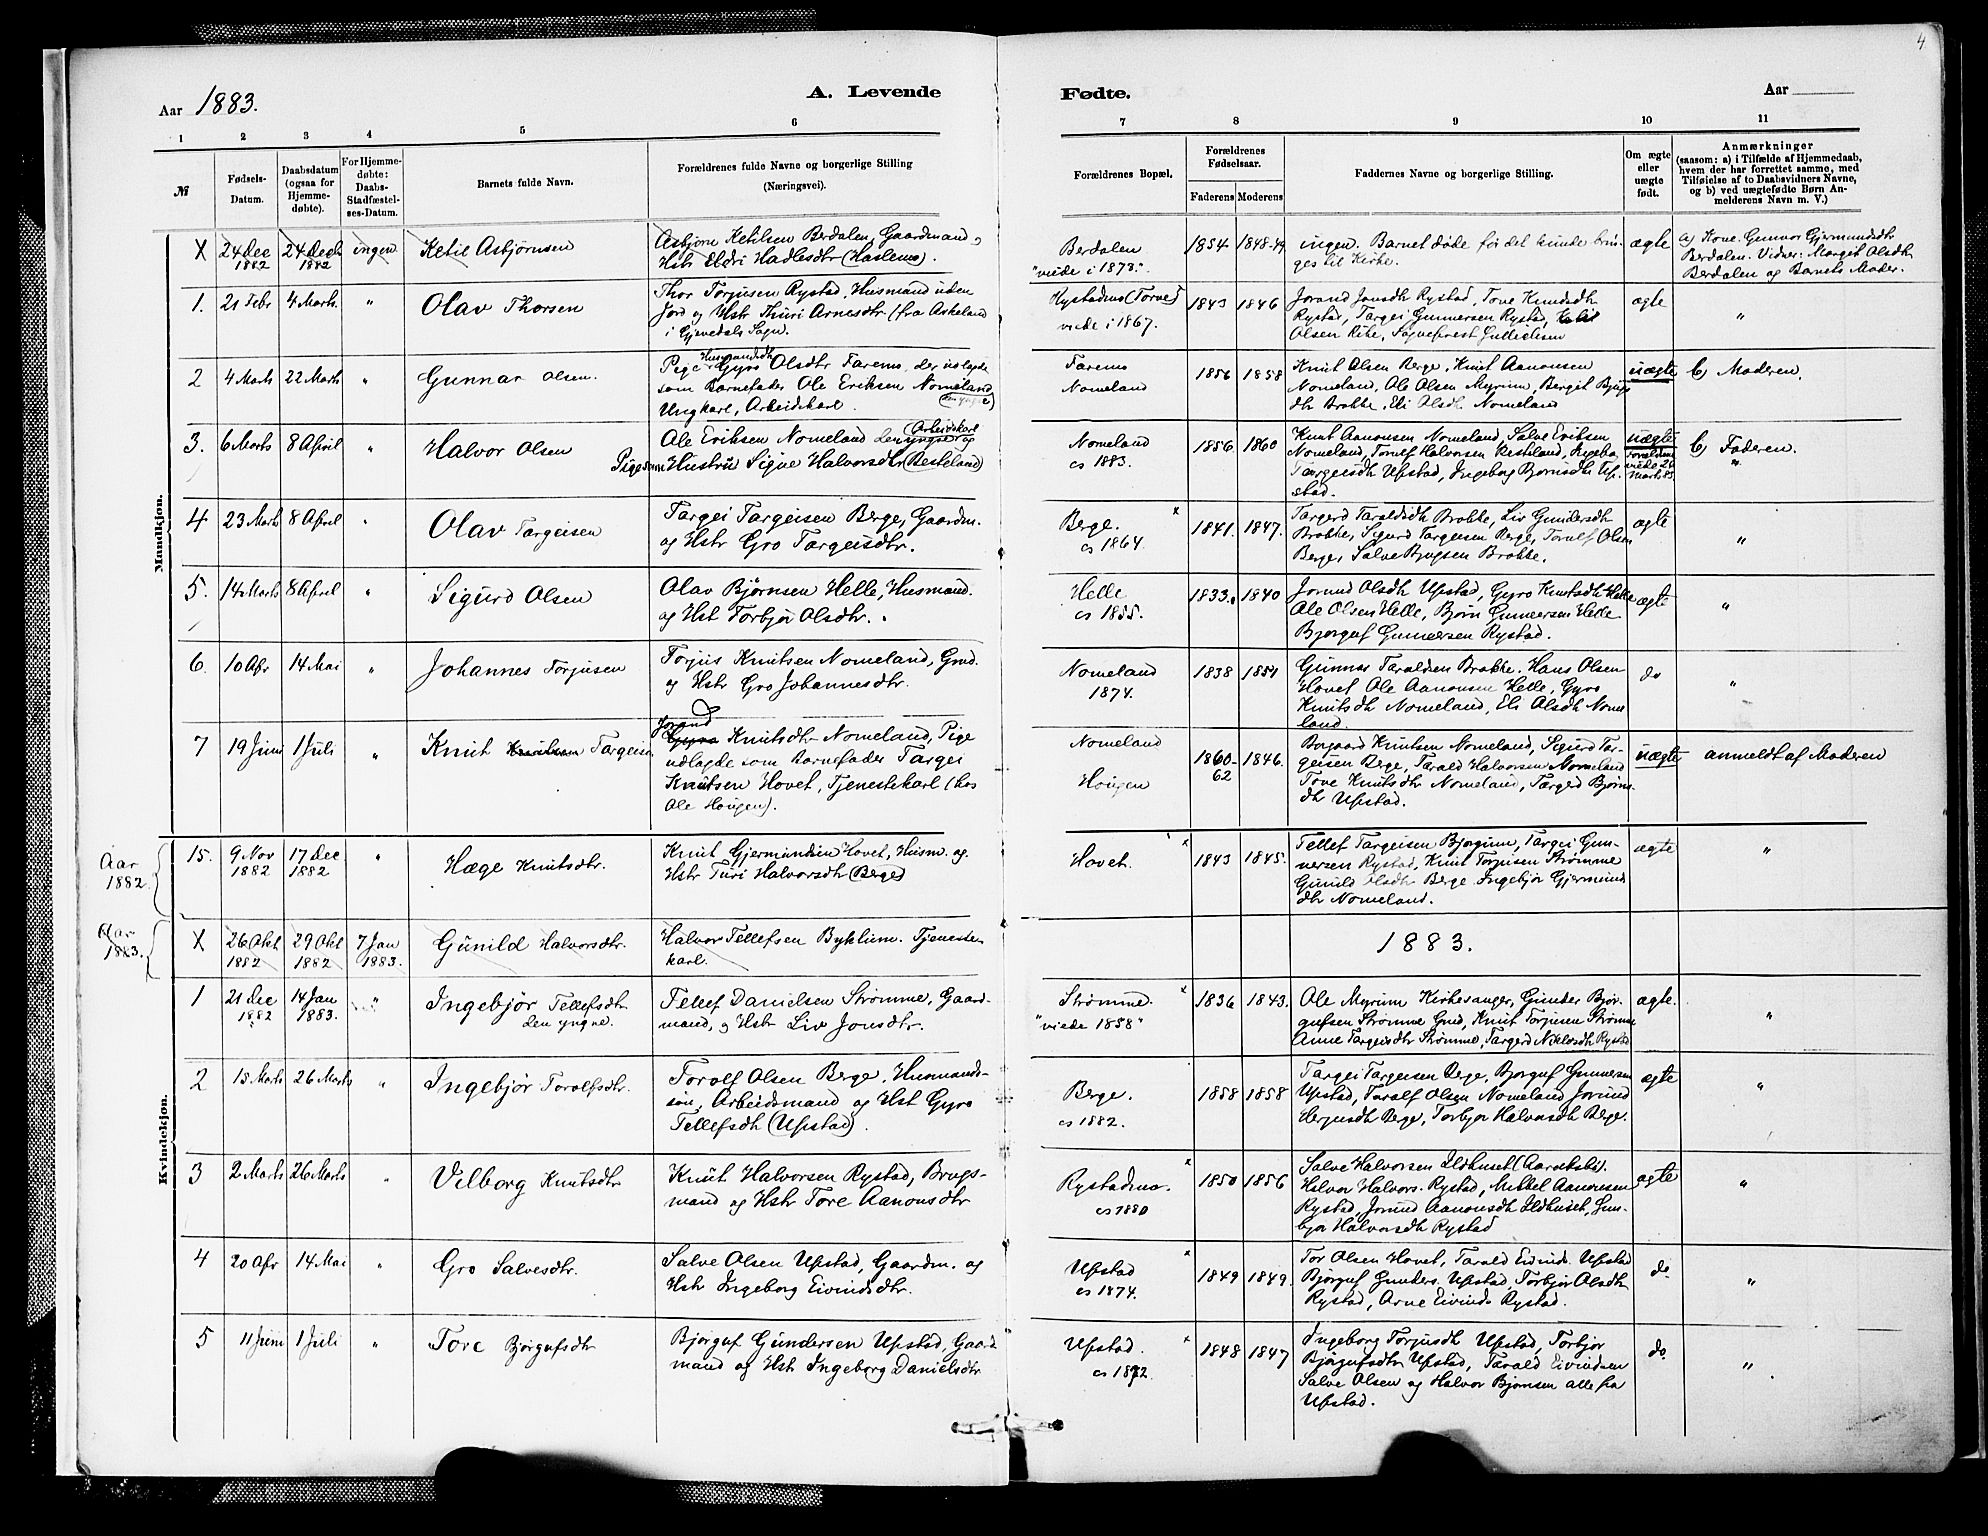 4
Aar 1883.
A. Levende
Fødte.
Aar
1
2
3
4
5
6
7
8
9
10
11
№
Fødsels-
Datum.
Daabsdatum
(ogsaa for
Hjemme-
døbte).
For Hjemme-
døbte:
Daabs-
Stadfæstel-
ses-Datum.
Barnets fulde Navn.
Forældrenes fulde Navne og borgerlige Stilling
(Næringsvei).
Forældrenes Bopæl.
Forældrenes
Fødselsaar.
Faderens
Moderens
Faddernes Navne og borgerlige Stilling.
Om ægte
eller
uægte
født.
Anmærkninger
(saasom: a) i Tilfælde af Hjemmedaab,
hvem der har forrettet samme, med
Tilføielse af to Daabsvidners Navne,
og b) ved uægtefødte Børn An-
melderens Navn m. V.)
Mandkjøn.
X
24 Dec
1882
24 Dec
1882
ingen
Ketil Asbjørnsen
Asbjørn Ketilsen Berdalen, Gaardmand,
Hstr Eldri Hadlesdtr (Haslemo).
Berdalen
"viede i 1873".
1854
1848-49
ingen. Barnet døde før det kunde brin-
ges til Kirke.
ægte
a) Kone Gunvor Gjermundsdt
Berdalen. Vidner: Margit Olsdtr
Berdalen og Barnets Moder.
1.
21 Febr
4 Marts
"
Olav Thorsen
Thor Torjusen Rystad, Husmand uden
Jord og Hstr Thuri Arnesdtr (fra Askeland
i Gjevedals Sogn.
Rystadmo (Torve)
viede i 1867.
1843
1846
Jorand Jonsdtr Rystad, Tove Knudsdtr
Rystad, Targei Gunnersen Rystad,
Olsen Rike,
ægte
"
2
4 Marts
22 Marts
"
Gunnar Olsen.
Husmandsdtr
Pige Gyro Olsdtr Faremo, der udlagde
som Barnefader Ole Eriksen Nomeland
(den yngre)
Ungkarl, Arbeidskarl.
Faremo
Nomeland
1856
1858
Knut Olsen Berge, Knut Aanonsen
Nomeland, Ole Olsen Myrum, Bergit Bjugs
dtr Brokke, Eli Olsdtr Nomeland
uægte
b) Moderen.
3.
6 Marts
8 April
"
Halvor Olsen
Arbeidskarl
Ole Eriksen Nomeland den yngre og
Hustru Signe Halvorsdtr (Besteland)
Nomeland
cs 1883.
1856
1860
Knut Aanonsen Nomeland, Salve Eriksen
Nomeland, Torulf Halvorsen Besteland,
Targeisdtr Upstad, Ingeborg Bjørnsdtr Up-
stad.
uægte
Forældrene
viede 26
Marts 83.
b) Faderen.
"
4
23 Marts
8 April
"
Olav Targeisen
Targei Targeisen Berge, Gaardm.
og Hstr Gro Targeisdtr.
Berge.
cs 1864.
x
1841.
1847.
Targerd Taraldsdtr Brokke, Liv Gundersdtr
Brokke, Sigurd Targeisen Berge, Torulf Olsen
Berge, Salve Bjugsen Brokke.
ægte
"
5.
14 Marts
8 April
"
Sigurd Olsen
Olav Bjørnsen Helle, Husmand.
og Hst Torbjør Olsdtr.
Helle
cs 1855.
1833.
1840
Jorund Olsdtr Upstad, Gyro Knutsdtr Helle
Ole Olsen Helle, Bjørn Gunnersen Helle
Bjorguf Gunnersen Rystad.
ægte
"
6.
10 Apr
14 Mai
"
Johannes Torjusen
Torjus Knutsen Nomeland, Grmd.
og Hstr Gro Johannesdtr.
Nomeland
1874.
1838
1851
Gunnar Taraldsen Brokke, Hans Olsen
Hovet, Ole Aanonsen Helle, Gyro
Knutsdtr Nomeland, Eli Olsdtr Nome
land.
do
"
7
19 Juni
1 Juli
"
Knut Knutsen Targeisen
Jorand
Gyro Knutsdtr Nomeland, Pige
udlagde som Barnefader Targei
Knutsen Hovet, Tjenestekarl (hos
Ole Hougen).
Nomeland
Hougen
1860-
62
1846.
Borgard Knutsen Nomeland, Sigurd Tar-
geisen Berge, Tarald Halvorsen Nomeland
Tove Knutsdtr Nomeland, Targerd Bjørns
dtr Upstad.
uægte
anmeldt af Moderen
Kvindekjøn.
Aar
1882.
15.
9 Nov
1882
17 Dec
1882
"
Hæge Knutsdtr.
Knut Gjermundsen Hovet, Husm. og.
Hstr Turi Halvorsdtr (Berge)
Hovet.
x
1843
1845.
Tellef Targeisen Bjorgum, Targei Gun-
nersen Rystad, Knut Torjusen Strømme
Gunild Olsdtr Berge, Ingebjør Gjermund
dtr Nomeland.
ægte
"
Aar
1883.
X
26 Okt
1882
29 Okt
1882
7 Jan
1883.
Gunild Halvorsdtr.
Halvor Tellefsen Byklum. Tjeneste
karl.
1883.
1
21 Dec
1882
14 Jan
1883.
"
Ingebjør Tellefsdtr
den yngre.
Tellef Danielsen Strømme, Gaard-
mand, og Hstr Liv Jonsdtr.
Strømme.
"viede 1858"
x
1836
1843.
Ole Myrum Kirkesanger, Gunder Bjør-
gufsen Strømme Grmd, Knut Torjusen Strømme
Anne Targeisdtr Strømme, Targerd Niklosdtr Rystad
ægte.
"
2
15 Marts
26 Marts
"
Ingebjør Torolfsdtr.
Torolf Olsen Berge, Husmands-
søn, Arbeidsmand og Hst Gyro
Tellefsdtr (Upstad).
Berge.
cs 1882.
1858
1858
Targei Targeisen Berge, Bjorguf Gunnersen
Upstad, Torolf Olsen Nomeland Jorund
Herjusdtr Berge, Torbjør Halvorsdtr Berge.
ægte
"
3
2 Marts
26 Marts
"
Vilborg Knutsdtr
Knut Halvorsen Rystad, Brugs-
mand og Hstr Tore Aanonsdtr
Rystadmo.
cs 1880
x
1850
1856
Salve Halvorsen Ildhuset (Aaraksbø).
Halvor Halvors. Rystad, Mikkel Aanonsen
Rystad, Jorund Aanonsdtr Ildhuset, Gun-
bjør Halvorsdtr Rystad
ægte
"
4
20 Apr
14 Mai
"
Gro Salvesdtr.
Salve Olsen Upstad, Gaardm. og
Hstr Ingeborg Eivindsdtr.
Upstad
cs 1874.
x
1849
1849.
Tor Olsen Hovet, Tarald Eivinds. Upstad
Bjørguf Gunders. Upstad, Torbjør Olsdtr
Rystad, Arne Eivinds Rystad.
do
"
5
11 Juni
1 Juli
"
Tore Bjørgufsdtr
Bjørguf Gundersen Upstad, Gaard
mand og Hst Ingeborg Danielsdtr
Upstad.
cs 1872.
x
1848
1847
Ingeborg Torjusdtr Upstad, Torbjør
Bjørgufsdtr Upstad, Tarald Eivindsen
Salve Olsen og Halvor Bjørnsen alle fra
Upstad.
do
"